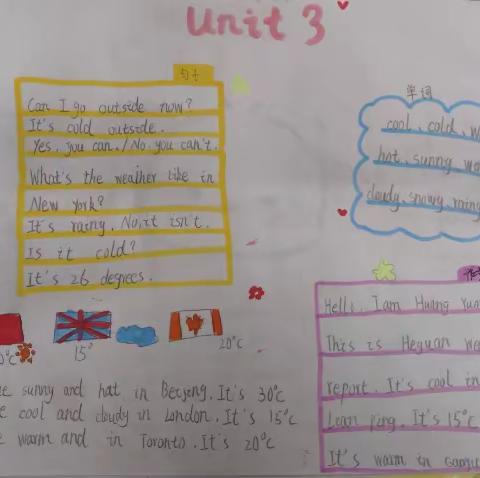 Unit 3
句子
Can I go outside now?
It's cold outside.
Yes, you can./No, you can't.
What's the weather like in
New York?
It's rainy. No, it isn't.
Is it cold?
It's 26 degrees.
单词
cool, cold, w
hot, sunny, wa
cloudy, snowy, rainy
15°
20°c
sunny and hot in Beijeng. It's 30°c
cool and cloudy in London. It's 15°c
warm and in Toronto. It's 20°c
Hello, I am Huang Yua
This is Heyuan wea
report. It's cool in
Lean ping. It's 15°c
It's warm in